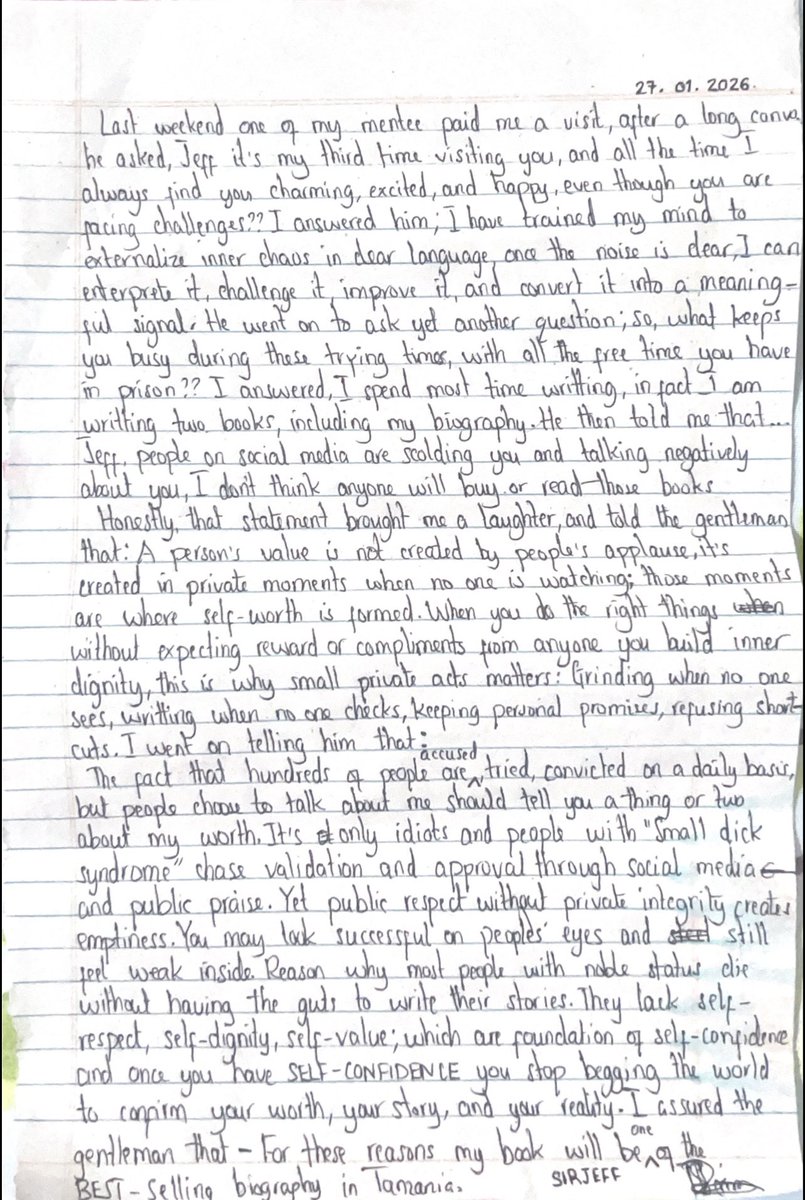 27. 01. 2026.
Last weekend one of my mentee paid me a visit, after a long convo,
he asked, Jeff it's my third time visiting you, and all the time I
always find you charming, excited, and happy, even though you are
facing challenges?? I answered him; I have trained my mind to
externalize inner chaos in clear language, once the noise is clear, I can
enterprete it, challenge it, improve it, and convert it into a meaning-
ful signal. He went on to ask yet another question; so, what keeps
you busy during these trying times, with all the free time you have
in prison?? I answered, I spend most time writting, in fact i am
writting two books, including my biography. He then told me that...
Jeff, people on social media are scolding you and talking negatively
about you, I don't think anyone will buy or read those books
Honestly, that statement brought me a laughter, and told the gentleman
that: A person's value is not created by people's applause, it's
created in private moments when no one is watching; those moments
are where self-worth is formed. When you do the right things when
without expecting reward or compliments from anyone you build inner
dignity, this is why small private acts matters: Grinding when no one
sees, writting when no one checks, keeping personal promises, refusing short-
cuts. I went on telling him that:
The fact that hundreds of people are accused, tried, convicted on a daily basis,
but people choose to talk about me should tell you a thing or two
about my worth. It's only idiots and people with "Small dick
syndrome" chase validation and approval through social media
and public praise. Yet public respect without private integrity creates
emptiness. You may look 'successful' on peoples' eyes and still
feel weak inside. Reason why most people with noble status die
without having the guts to write their stories. They lack self-
respect, self-dignity, self-value; which are foundation of self-confidence
and once you have SELF-CONFIDENCE you stop begging the world
to confirm your worth, your story, and your reality. I assured the
gentleman that - For these reasons my book will be one of the
BEST-selling biography in Tanzania. SIRJEFF